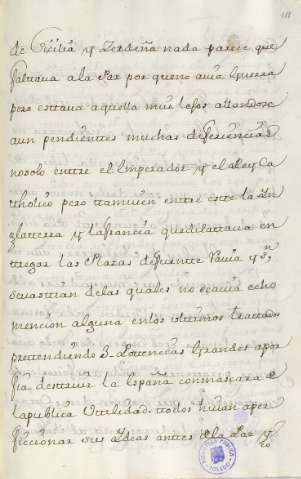 de Cicilia y Zerdeña nada parece que
faltaua a la Paz por que no auia Guerra
pero estaua aquella mui lejos allandose
aun pendientes muchas diferencias
no solo entre el Emperador y el Rey Ca
tholico pero tamuien entre este la In
glaterra y la francia que dilataua en
tregar las Plazas de fuente Rauia y Sn
Seuastian de las quales no se auia echo
mencion alguna en los Vltimos tractados
pretendiendo 3 Potencias Grandes a por
fia destruir la España con mascara de
la publica Vtilidad. todos hiuan a per
ficcionar sus ideas antes de la Paz y